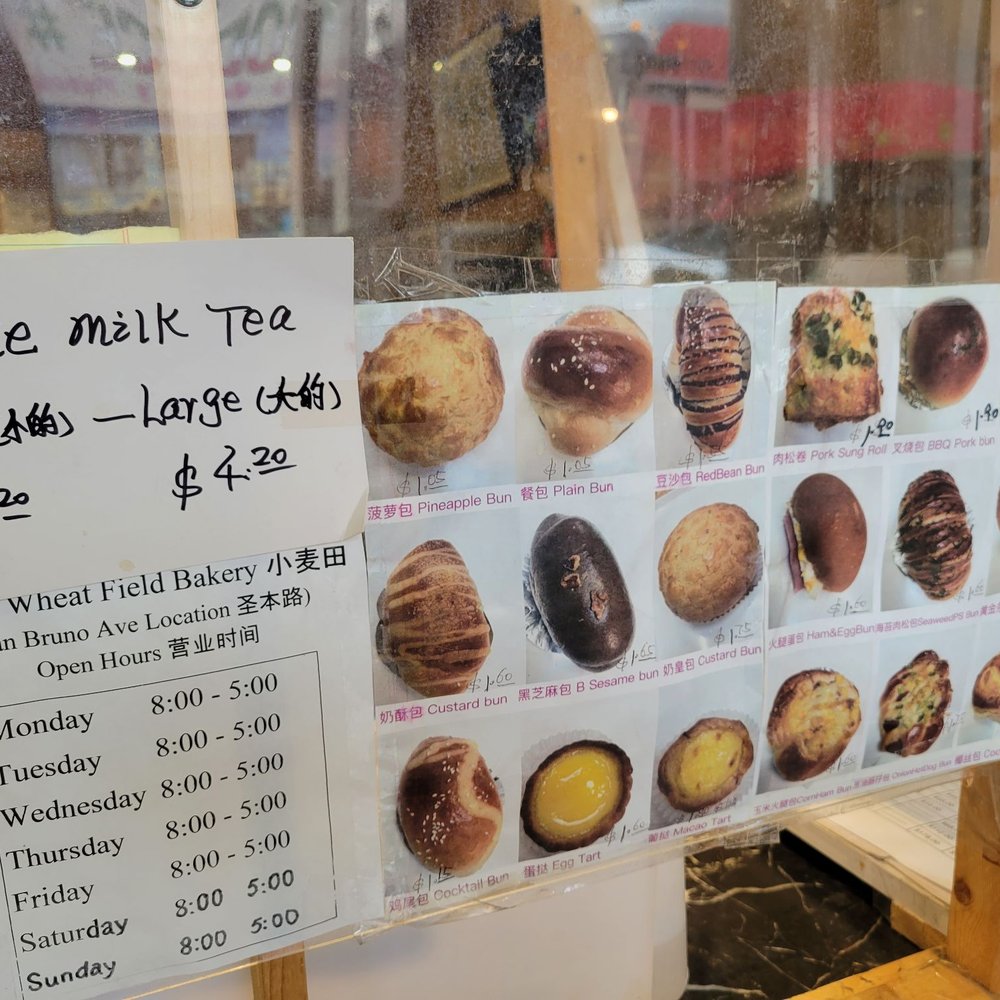 milk Tea
(小的) — Large (大的)
20 $ 4.20
Wheat Field Bakery 小麦田
Bruno Ave Location 圣本路)
Open Hours 营业时间
Monday 8:00 - 5:00
Tuesday 8:00 - 5:00
Wednesday 8:00 - 5:00
Thursday 8:00 - 5:00
Friday 8:00 - 5:00
Saturday 8:00 5:00
Sunday 8:00 5:00
$1.05 $1.05
$1.90 $1.90
菠萝包 Pineapple Bun 餐包 Plain Bun 豆沙包 RedBean Bun 肉松卷 Pork Sung Roll 叉烧包 BBQ Pork bun
$1.60 $1.65 $1.60
奶酥包 Custard bun 黑芝麻包 B Sesame bun 奶皇包 Custard Bun 火腿蛋包 Ham&EggBun 海苔肉松包SeaweedPS Bun
$1.60
鸡尾包 Cocktail Bun 蛋挞 Egg Tart 葡挞 Macao Tart 玉米火腿包CornHam Bun 椰丝包